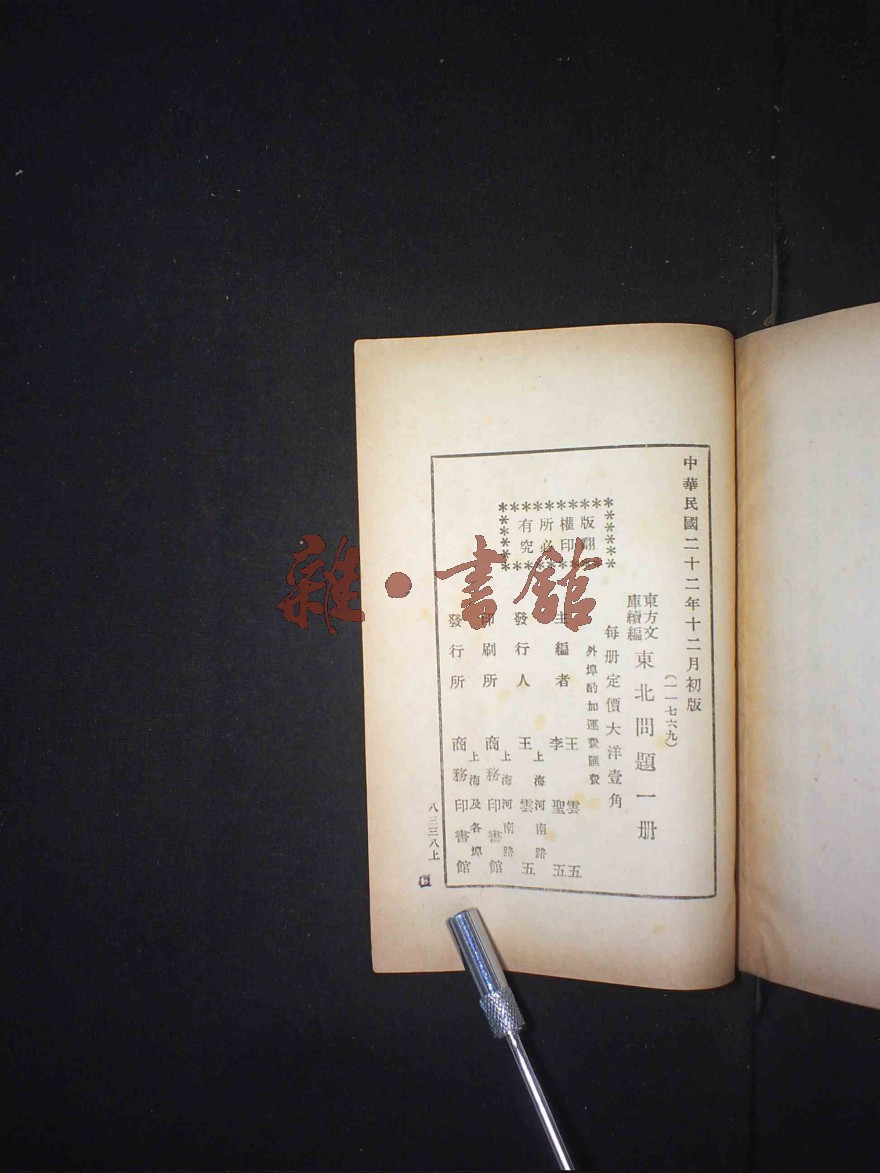 中華民國二十二年十二月初版
（一一七六九）
東方文
庫續編
東北問題一册
每册定價大洋壹角
外埠酌加運費匯費
版權所有
翻印必究
主編者
王雲五
李聖五
發行人
上海河南路
王雲五
印刷所
上海河南路
商務印書館
發行所
上海及各埠
商務印書館
八三三八上
雜·書館